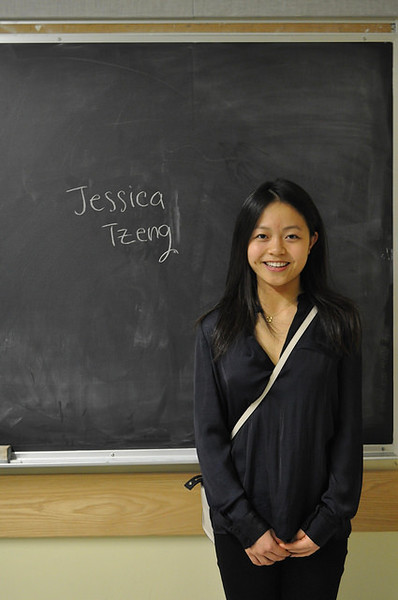 Jessica
Tzeng